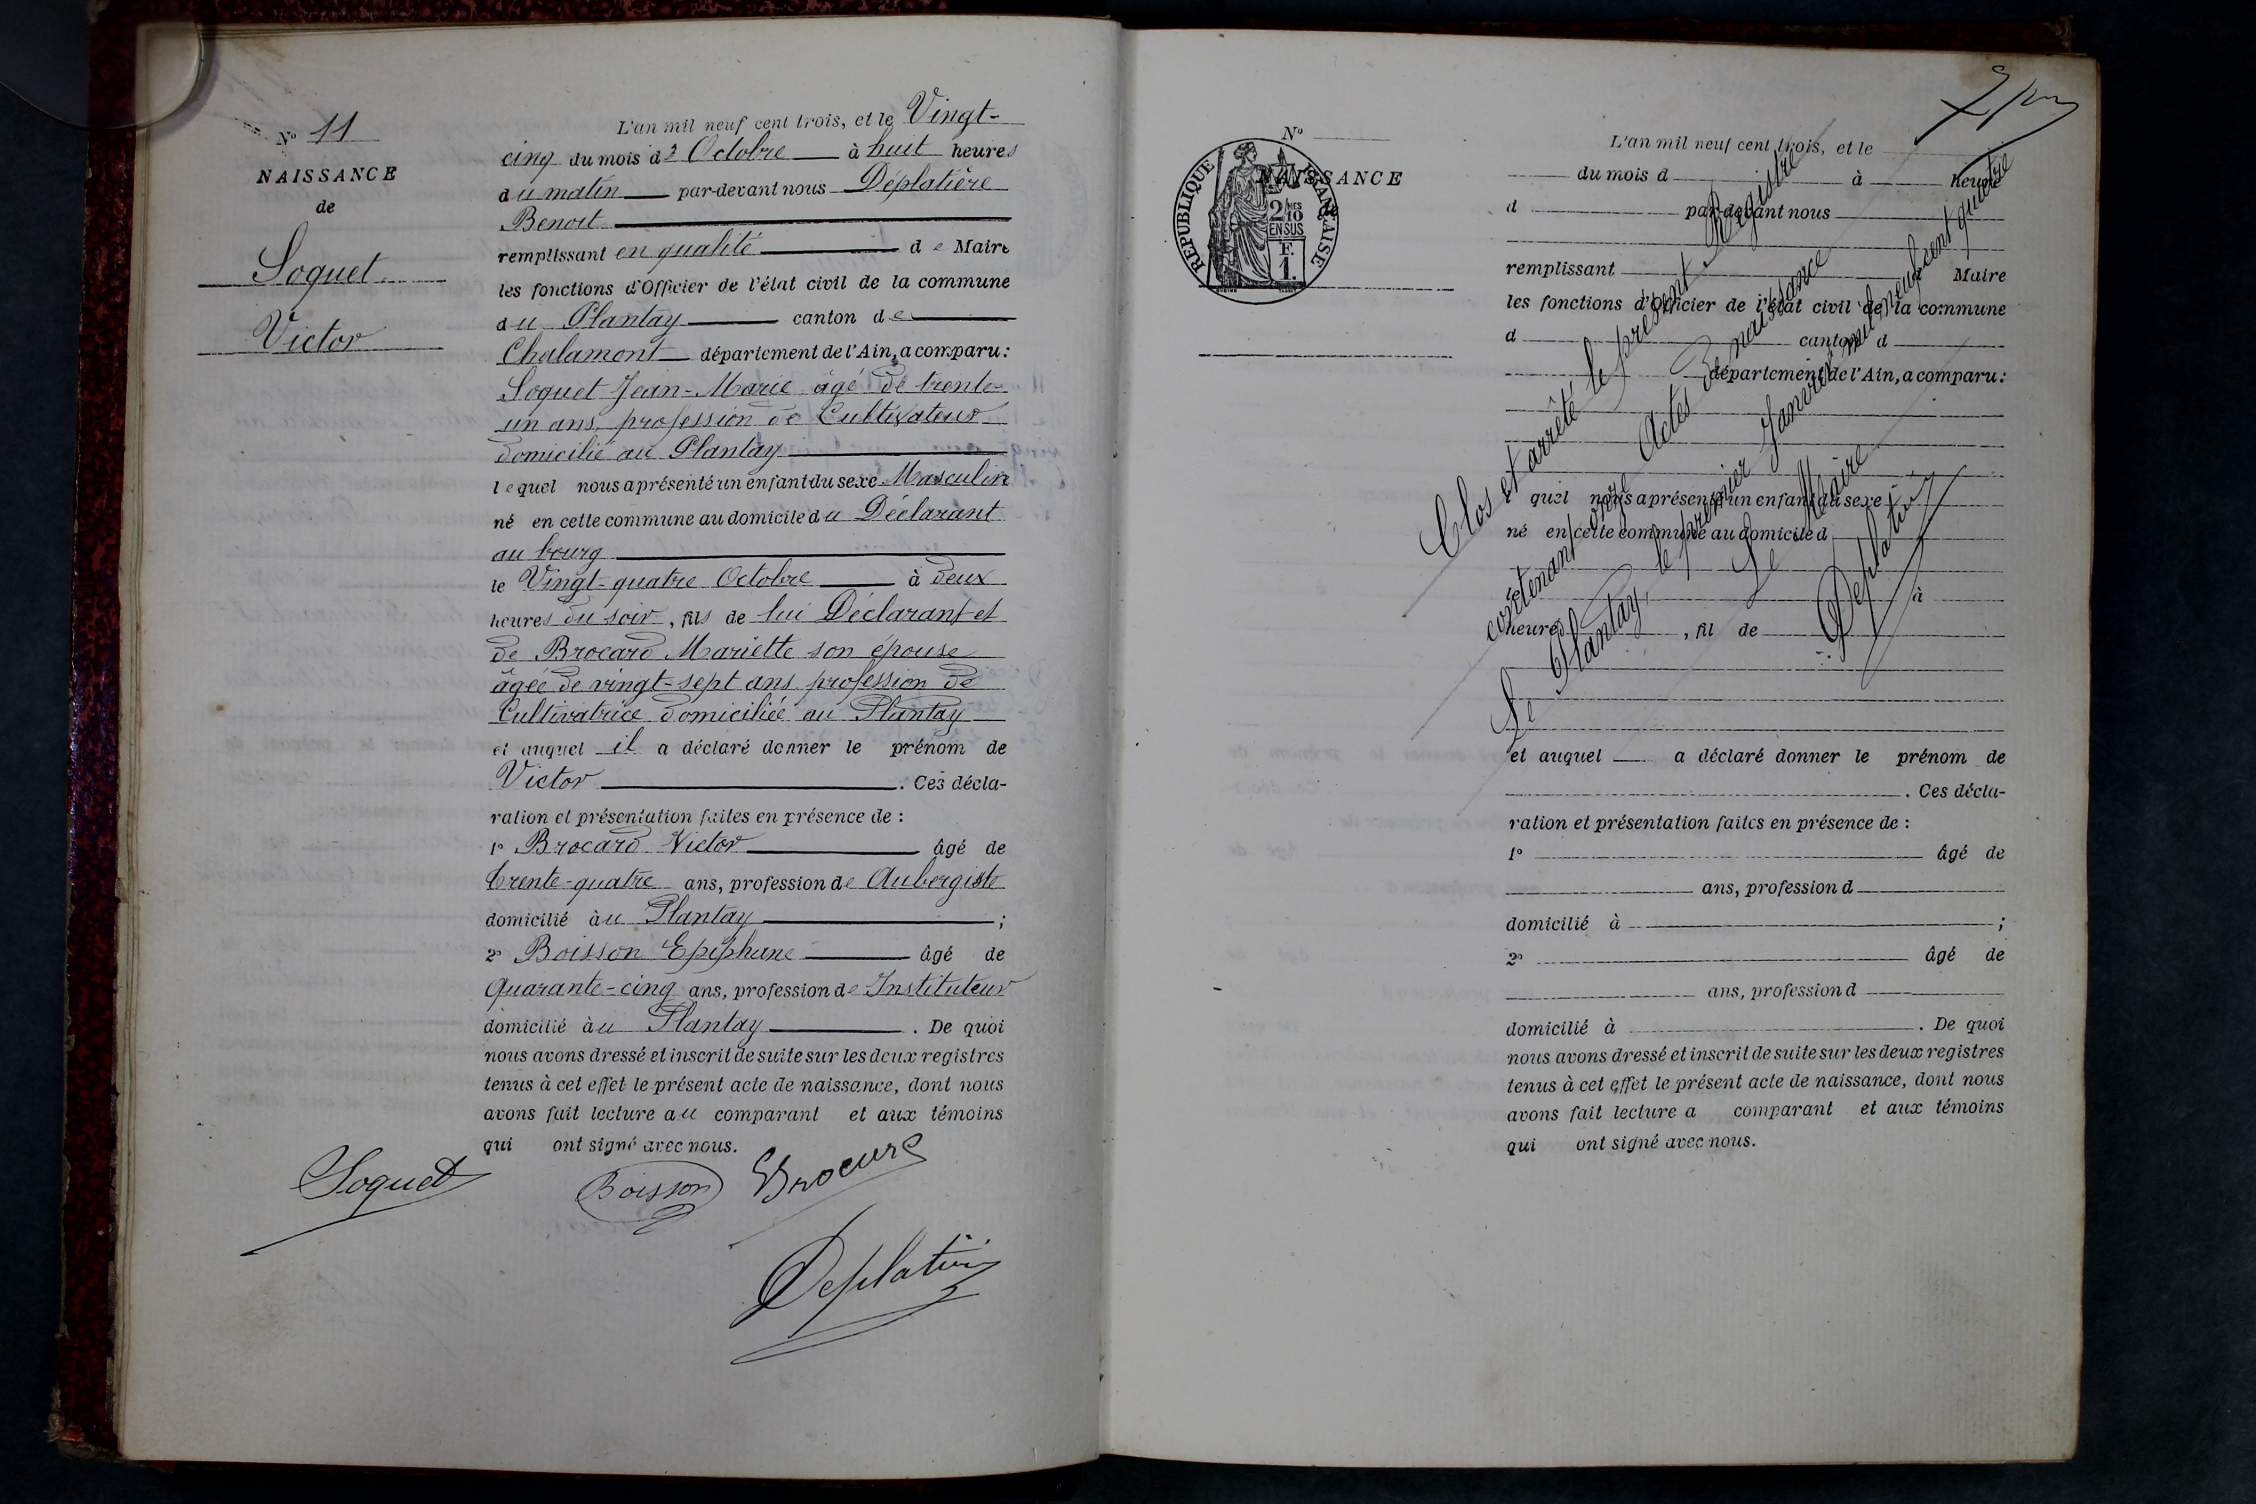 N° 11
NAISSANCE
de
Soquet
Victor
L'an mil neuf cent trois, et le Vingt-
cinq du mois d'Octobre à huit heures
du matin par-devant nous Déplatière
Benoit
remplissant en qualité de Maire
les fonctions d'Officier de l'état civil de la commune
du Plantay canton de
Chalamont département de l'Ain, a comparu :
Soquet Jean-Marie âgé de trente-
un ans, profession de Cultivateur
domicilié au Plantay
lequel nous a présenté un enfant du sexe Masculin
né en cette commune au domicile du Déclarant
au bourg
le Vingt-quatre Octobre à deux
heures du soir, fils de lui Déclarant et
de Brocard Mariette son épouse
âgée de vingt-sept ans profession de
Cultivatrice domiciliée au Plantay
et auquel il a déclaré donner le prénom de
Victor . Ces décla-
ration et présentation faites en présence de :
1° Brocard Victor âgé de
trente-quatre ans, profession de Aubergiste
domicilié àu Plantay ;
2° Boisson Epiphane âgé de
Quarante-cinq ans, profession de Instituteur
domicilié àu Plantay . De quoi
nous avons dressé et inscrit de suite sur les deux registres
tenus à cet effet le présent acte de naissance, dont nous
avons fait lecture au comparant et aux témoins
qui ont signé avec nous.
Soquet Boisson Brocard
Deplatière
N°
NAISSANCE
RÉPUBLIQUE FRANÇAISE
2/10 EN SUS
F.
1.
L'an mil neuf cent trois, et le
du mois d à heure
d par-devant nous
remplissant Maire
les fonctions d'Officier de l'état civil de la commune
d canton d
département de l'Ain, a comparu :
quel nous a présenté un enfant du sexe
né en cette commune au domicile d
le à
heure , fil de
et auquel a déclaré donner le prénom de
. Ces décla-
ration et présentation faites en présence de :
1° âgé de
ans, profession d
domicilié à ;
2° âgé de
ans, profession d
domicilié à . De quoi
nous avons dressé et inscrit de suite sur les deux registres
tenus à cet effet le présent acte de naissance, dont nous
avons fait lecture a comparant et aux témoins
qui ont signé avec nous.
Clos et arrêté le présent Registre
contenant onze Actes de naissance
Le Plantay, le premier Janvier mil neuf cent quatre
Le Maire
Deplatière